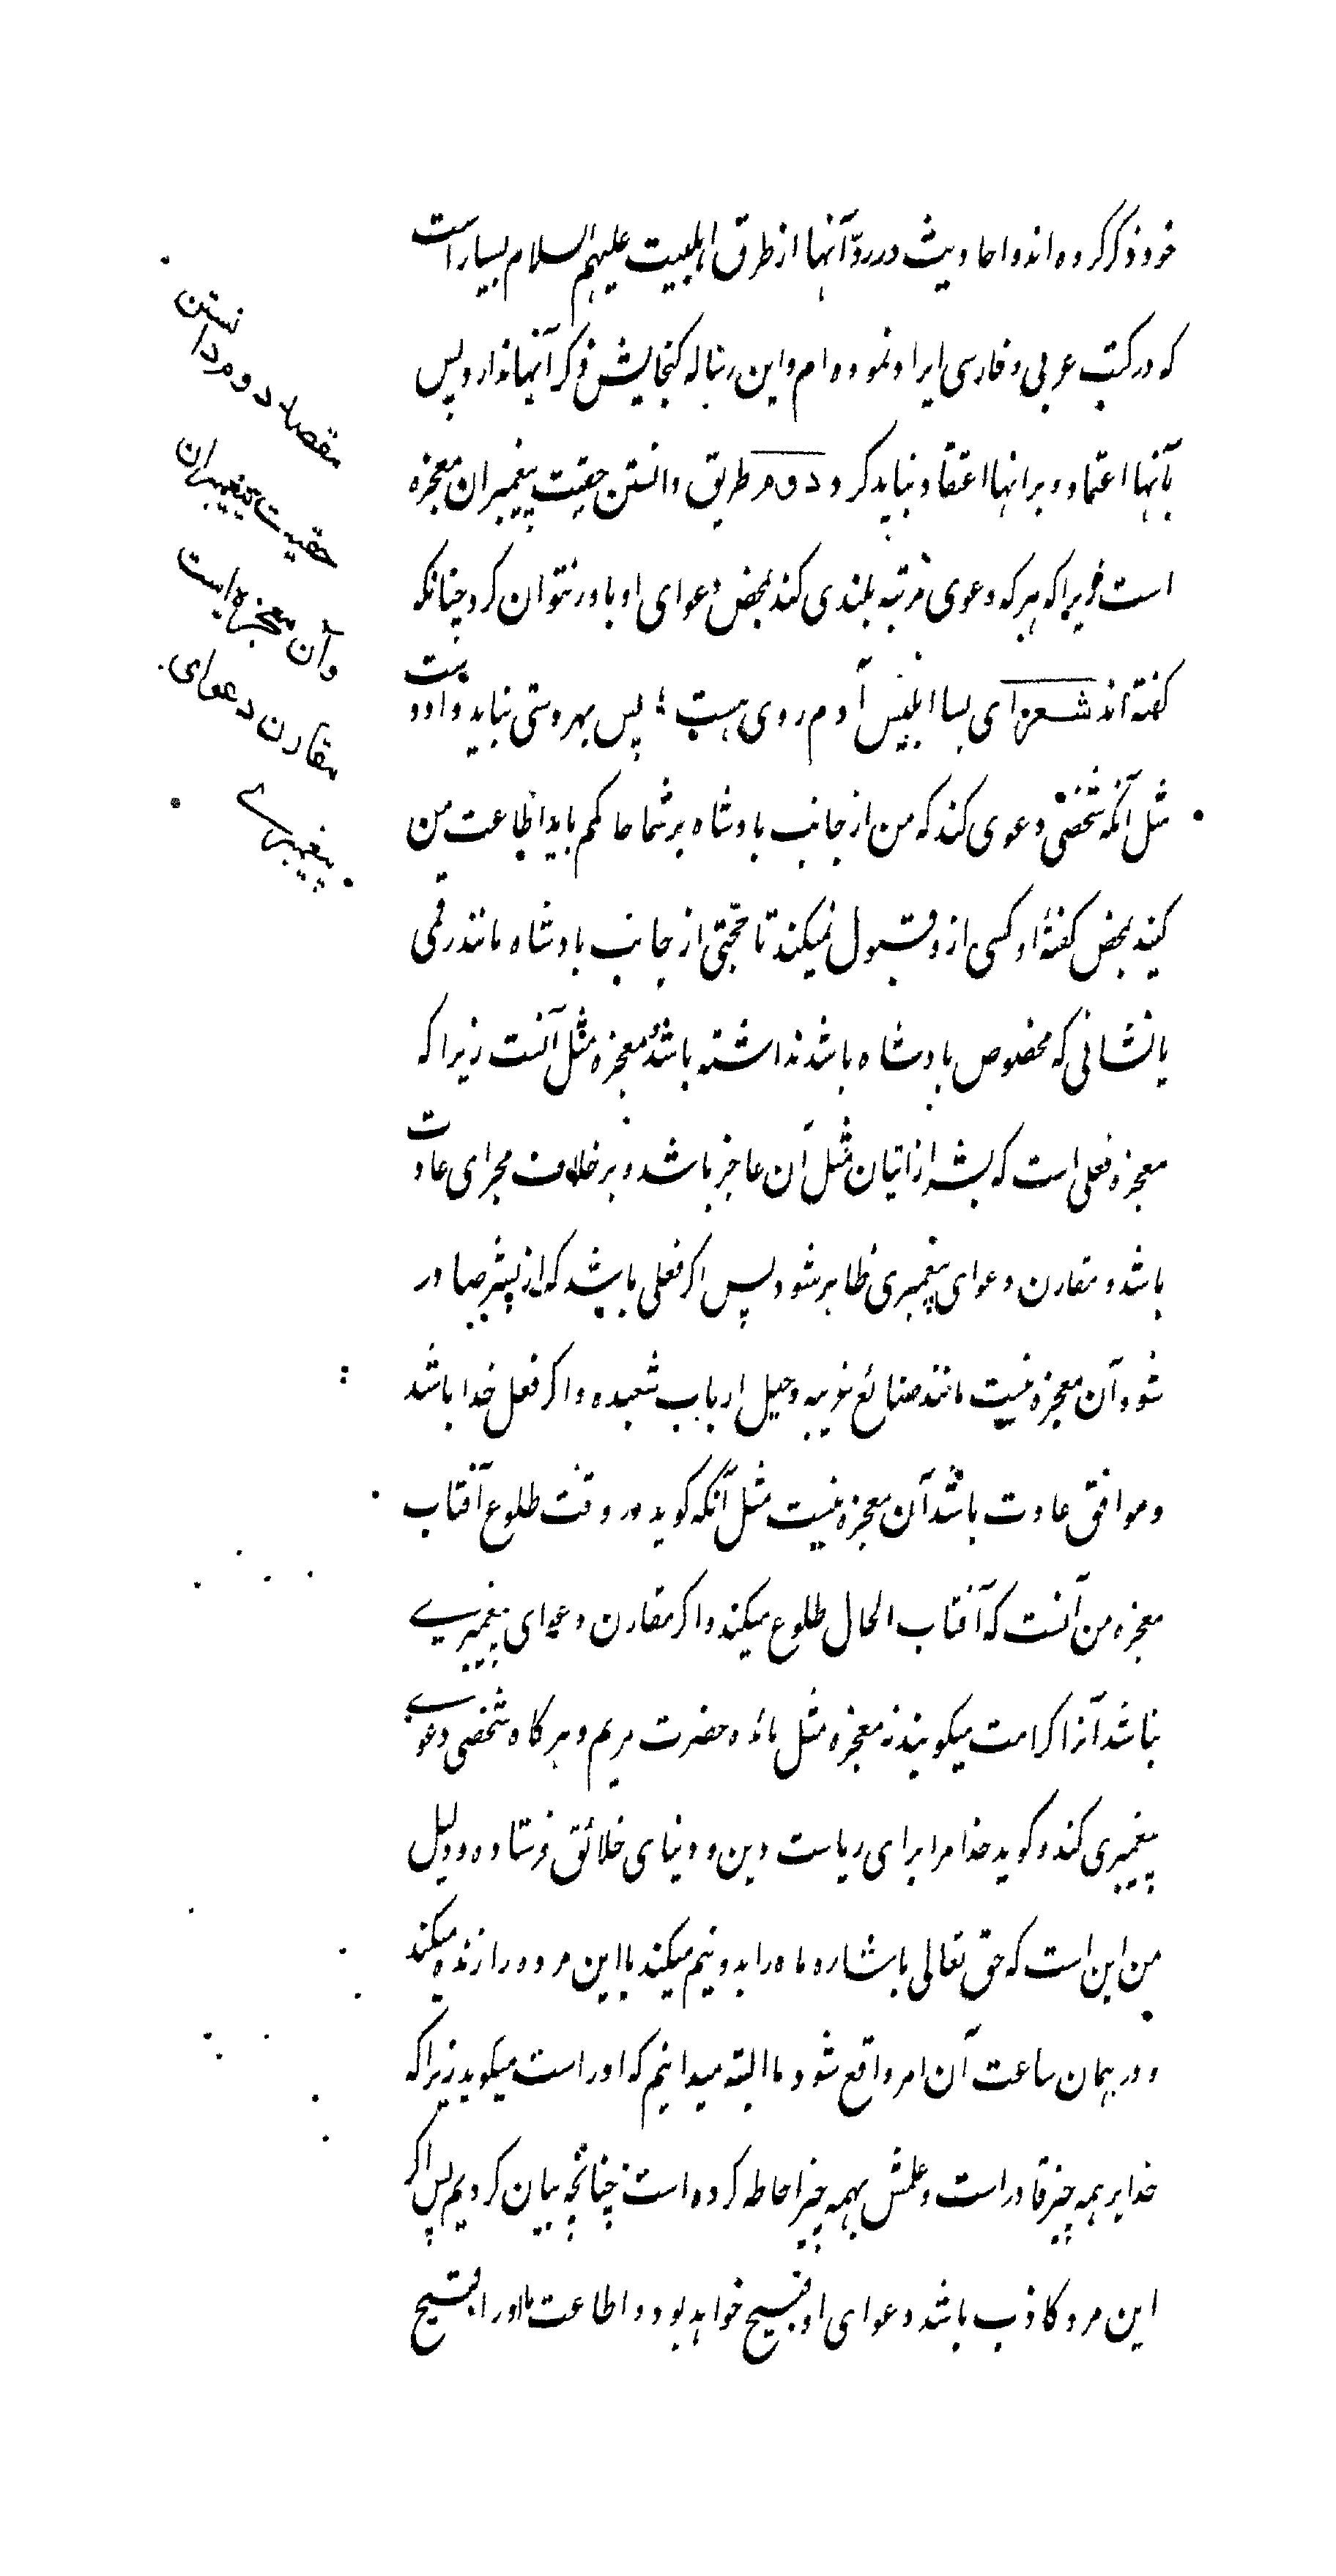 خود ذکر کرده اند و احادیث در ردّ آنها از طرق اهلبیت علیهم السلام بسیار است
که در کتب عربی و فارسی ایراد نموده ام و این رساله کنجایش ذکر آنها ندارد پس
بآنها اعتماد و برانها اعتقاد نباید کرد دوم طریق دانستن حقیت پیغمبران معجزه
است زیرا که هر که دعوی مرتبه بلندی کند بمحض دعوای او باور نتوان کرد چنانکه
کفته اند شعر ای بسا ابلیس آدم روی هست ؛ پس بهر دستی نباید داد دست
مثل آنکه شخصی دعوی کند که من از جانب بادشاه بر شما حاکمم باید اطاعت من
کنید بمحض کفتهٔ او کسی ازو قبول نمیکند تا حجّتی از جانب بادشاه مانند رقمی
یا نشانی که مخصوص بادشاه باشد نداشته باشد معجزه مثل آنست زیرا که
معجزه فعلی است که بشر از اتیان مثل آن عاجز باشد و بر خلاف مجرای عادت
باشد و مقارن دعوای پیغمبری ظاهر شود پس اکر فعلی باشد که از بشر صادر
شود آن معجزه نیست مانند صنائع غریبه و حیل ارباب شعبده و اکر فعل خدا باشد
و موافق عادت باشد آن معجزه نیست مثل آنکه کوید در وقت طلوع آفتاب
معجزه من آنست که آفتاب الحال طلوع میکند و اکر مقارن دعوای پیغمبری
نباشد آنرا کرامت میکویند نه معجزه مثل مائده حضرت مریم و هر کاه شخصی دعوی
پیغمبری کند و کوید خدا مرا برای ریاست دین و دنیای خلائق فرستاده و دلیل
من این است که حق تعالی باشاره ماه را بدو نیم میکند یا این مرده را زنده میکند
و در همان ساعت آن امر واقع شود ما البته میدانیم که او راست میکوید زیرا که
خدا بر همه چیز قادر است و علمش بهمه چیز احاطه کرده است چنانچه بیان کردیم پس اکر
این مرد کاذب باشد دعوای او قبیح خواهد بود و اطاعت ما او را قبیح
مقصد دوم دانستن
حقیت پیغمبران
و آن معجزه ایست
مقارن دعوای
پیغمبرے